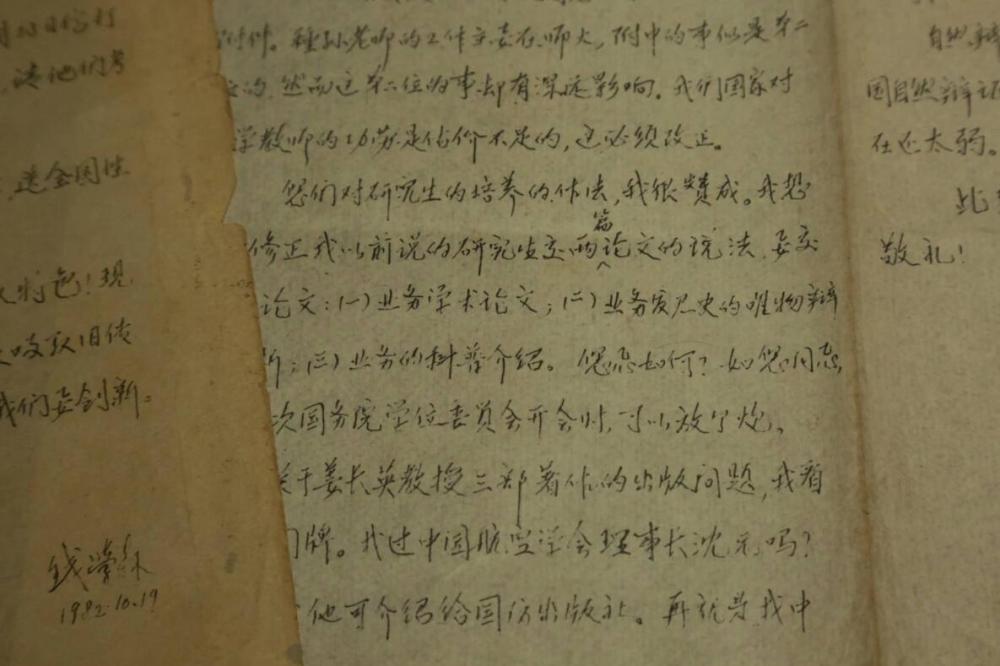 请他们考
送全国性
特色!现
吸取旧传
我们要创新。
钱学森
1982.10.19
附件。种孙老师的工作主要在师大,附中的事似是第二
位的,然而这第二位的事却有深远影响。我们国家对
学教师的功劳是估价不足的,这必须改正。
您们对研究生的培养的作法,我很赞成。我想
修正我以前说的研究生交两篇论文的说法,要交
论文:(一)业务学术论文;(二)业务发展史的唯物辩
析;(三)业务的科普介绍。您意如何?如您同意,
次国务院学位委员会开会时,可以放个炮。
关于姜长英教授三部著作的出版问题,我看
门牌。找过中国航空学会理事长沈元吗?
他可介绍给国防出版社。再就是找中
自然辩
国自然辩证
在还太弱。
此
敬礼!